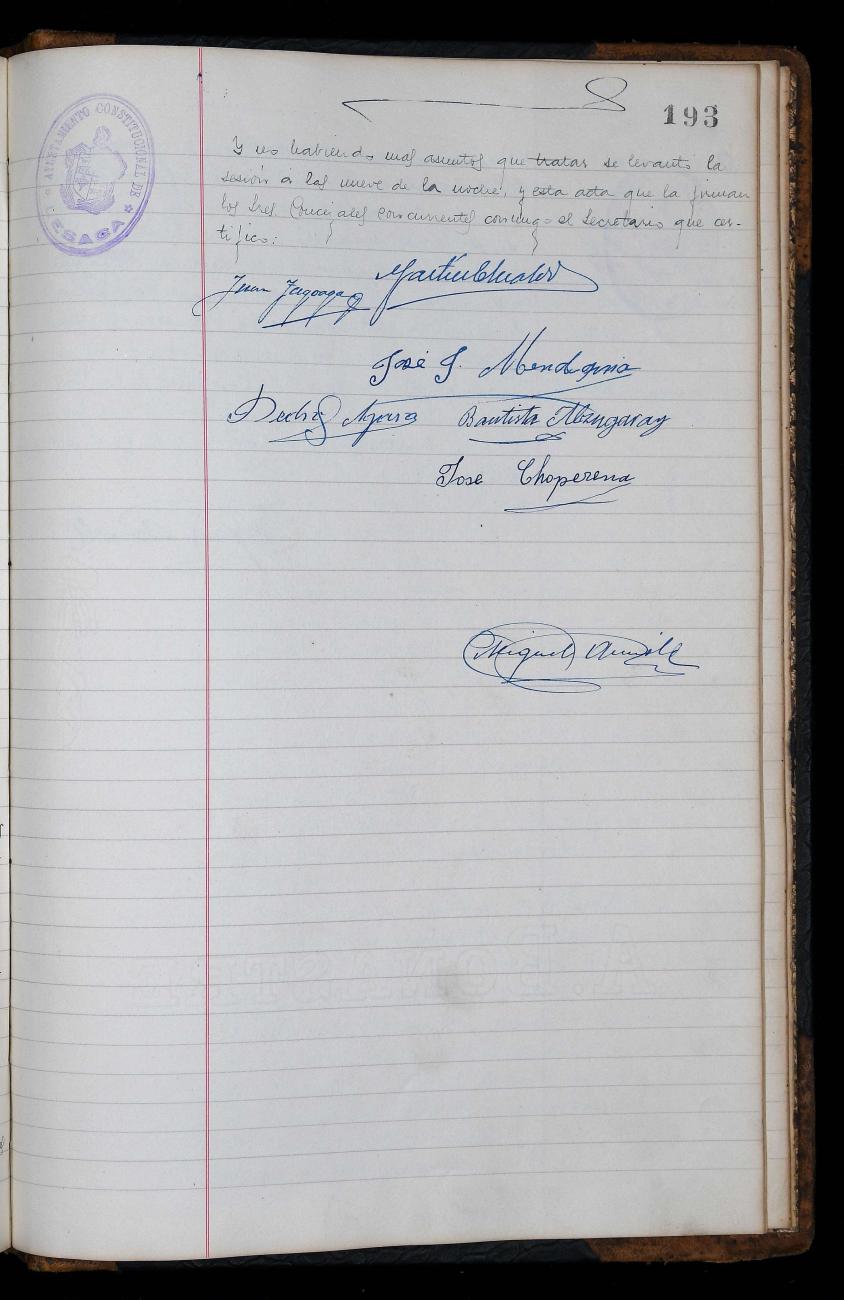 193
AYUNTAMIENTO CONSTITUCIONAL DE
LESACA
Y no habiendo mas asuntos que tratar se levanto la
sesión á las nueve de la noche, y esta acta que la firman
los Sres. Concejales concurrentes conmigo el Secretario que cer-
tifico:
Juan Jagoaga
Martin
José J. Mendiguia
Pedro
Bautista Abangaray
Jose Choperena
Miguel